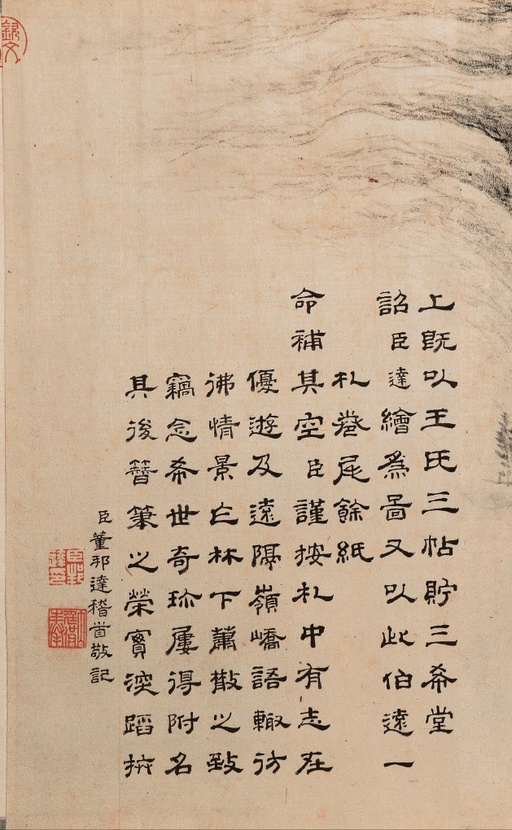 上既以王氏三帖貯三希堂
詔臣達繪為啚又以此伯遠一
札卷尾餘紙
命補其空臣謹按札中有志在
優遊及遠隔嶺嶠語輒彷
彿情景林下蕭散之致
竊念希世奇珍屢得附名
其後簪筆之榮實深蹈抃
臣董邦達稽首敬記